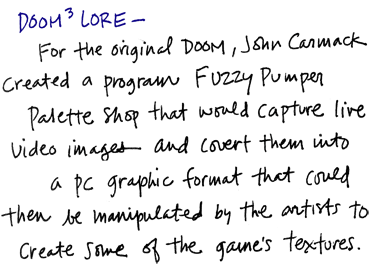 DOOM³ LORE —
For the original DOOM, John Carmack
created a program Fuzzy Pumper
Palette Shop that would capture live
video images and covert them into
a PC graphic format that could
then be manipulated by the artists to
create some of the game's textures.